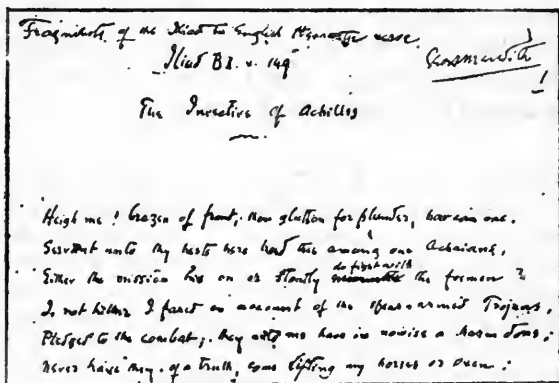 Fragments of the Iliad in English Hexameter verse.
Iliad B I. v. 149
George Meredith
The Invective of Achilles
Heigh me! brazen of front, thou glutton for plunder, how can one,
Servant unto thy hests here heed thee among our Achaians,
Either the mission hie on or stoutly do fight with the foemen?
I, not hither I fared on account of the spear-armed Trojans,
Pledged to the combat; they unto me have in nowise a harm done;
Never have they, of a truth, come lifting my horses or oxen;